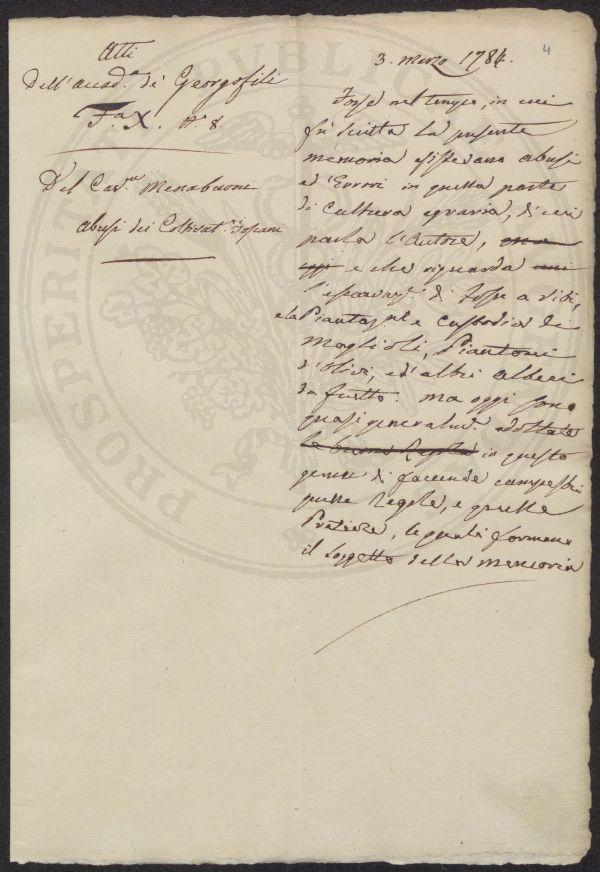 Atti
Dell'Accad.a de' Georgofili
F.a X. N.o 8.
Del Cav.re Menabuoni
abusi dei Coltivat.ri Toscani
4
3. Marzo 1784.
Forse nel tempo, in cui
fu scritta la presente
memoria esistevano abusi
ed Errori in quella parte
di Cultura agraria, di cui
parla l'Autore,
e che riguarda
l'escavaz.e di fosse a viti,
e la Piantag.ne e custodia di
Maglioli, Piantoni
d'Olivi, ed altri alberi
da frutto. ma oggi sono
quasi generalm.e adottate
le buone Regole in questo
genere di faccende campestri
quelle Regole, e quelle
Pratiche, le quali formano
il soggetto della memoria
PROSPERITÀ PUBLICA